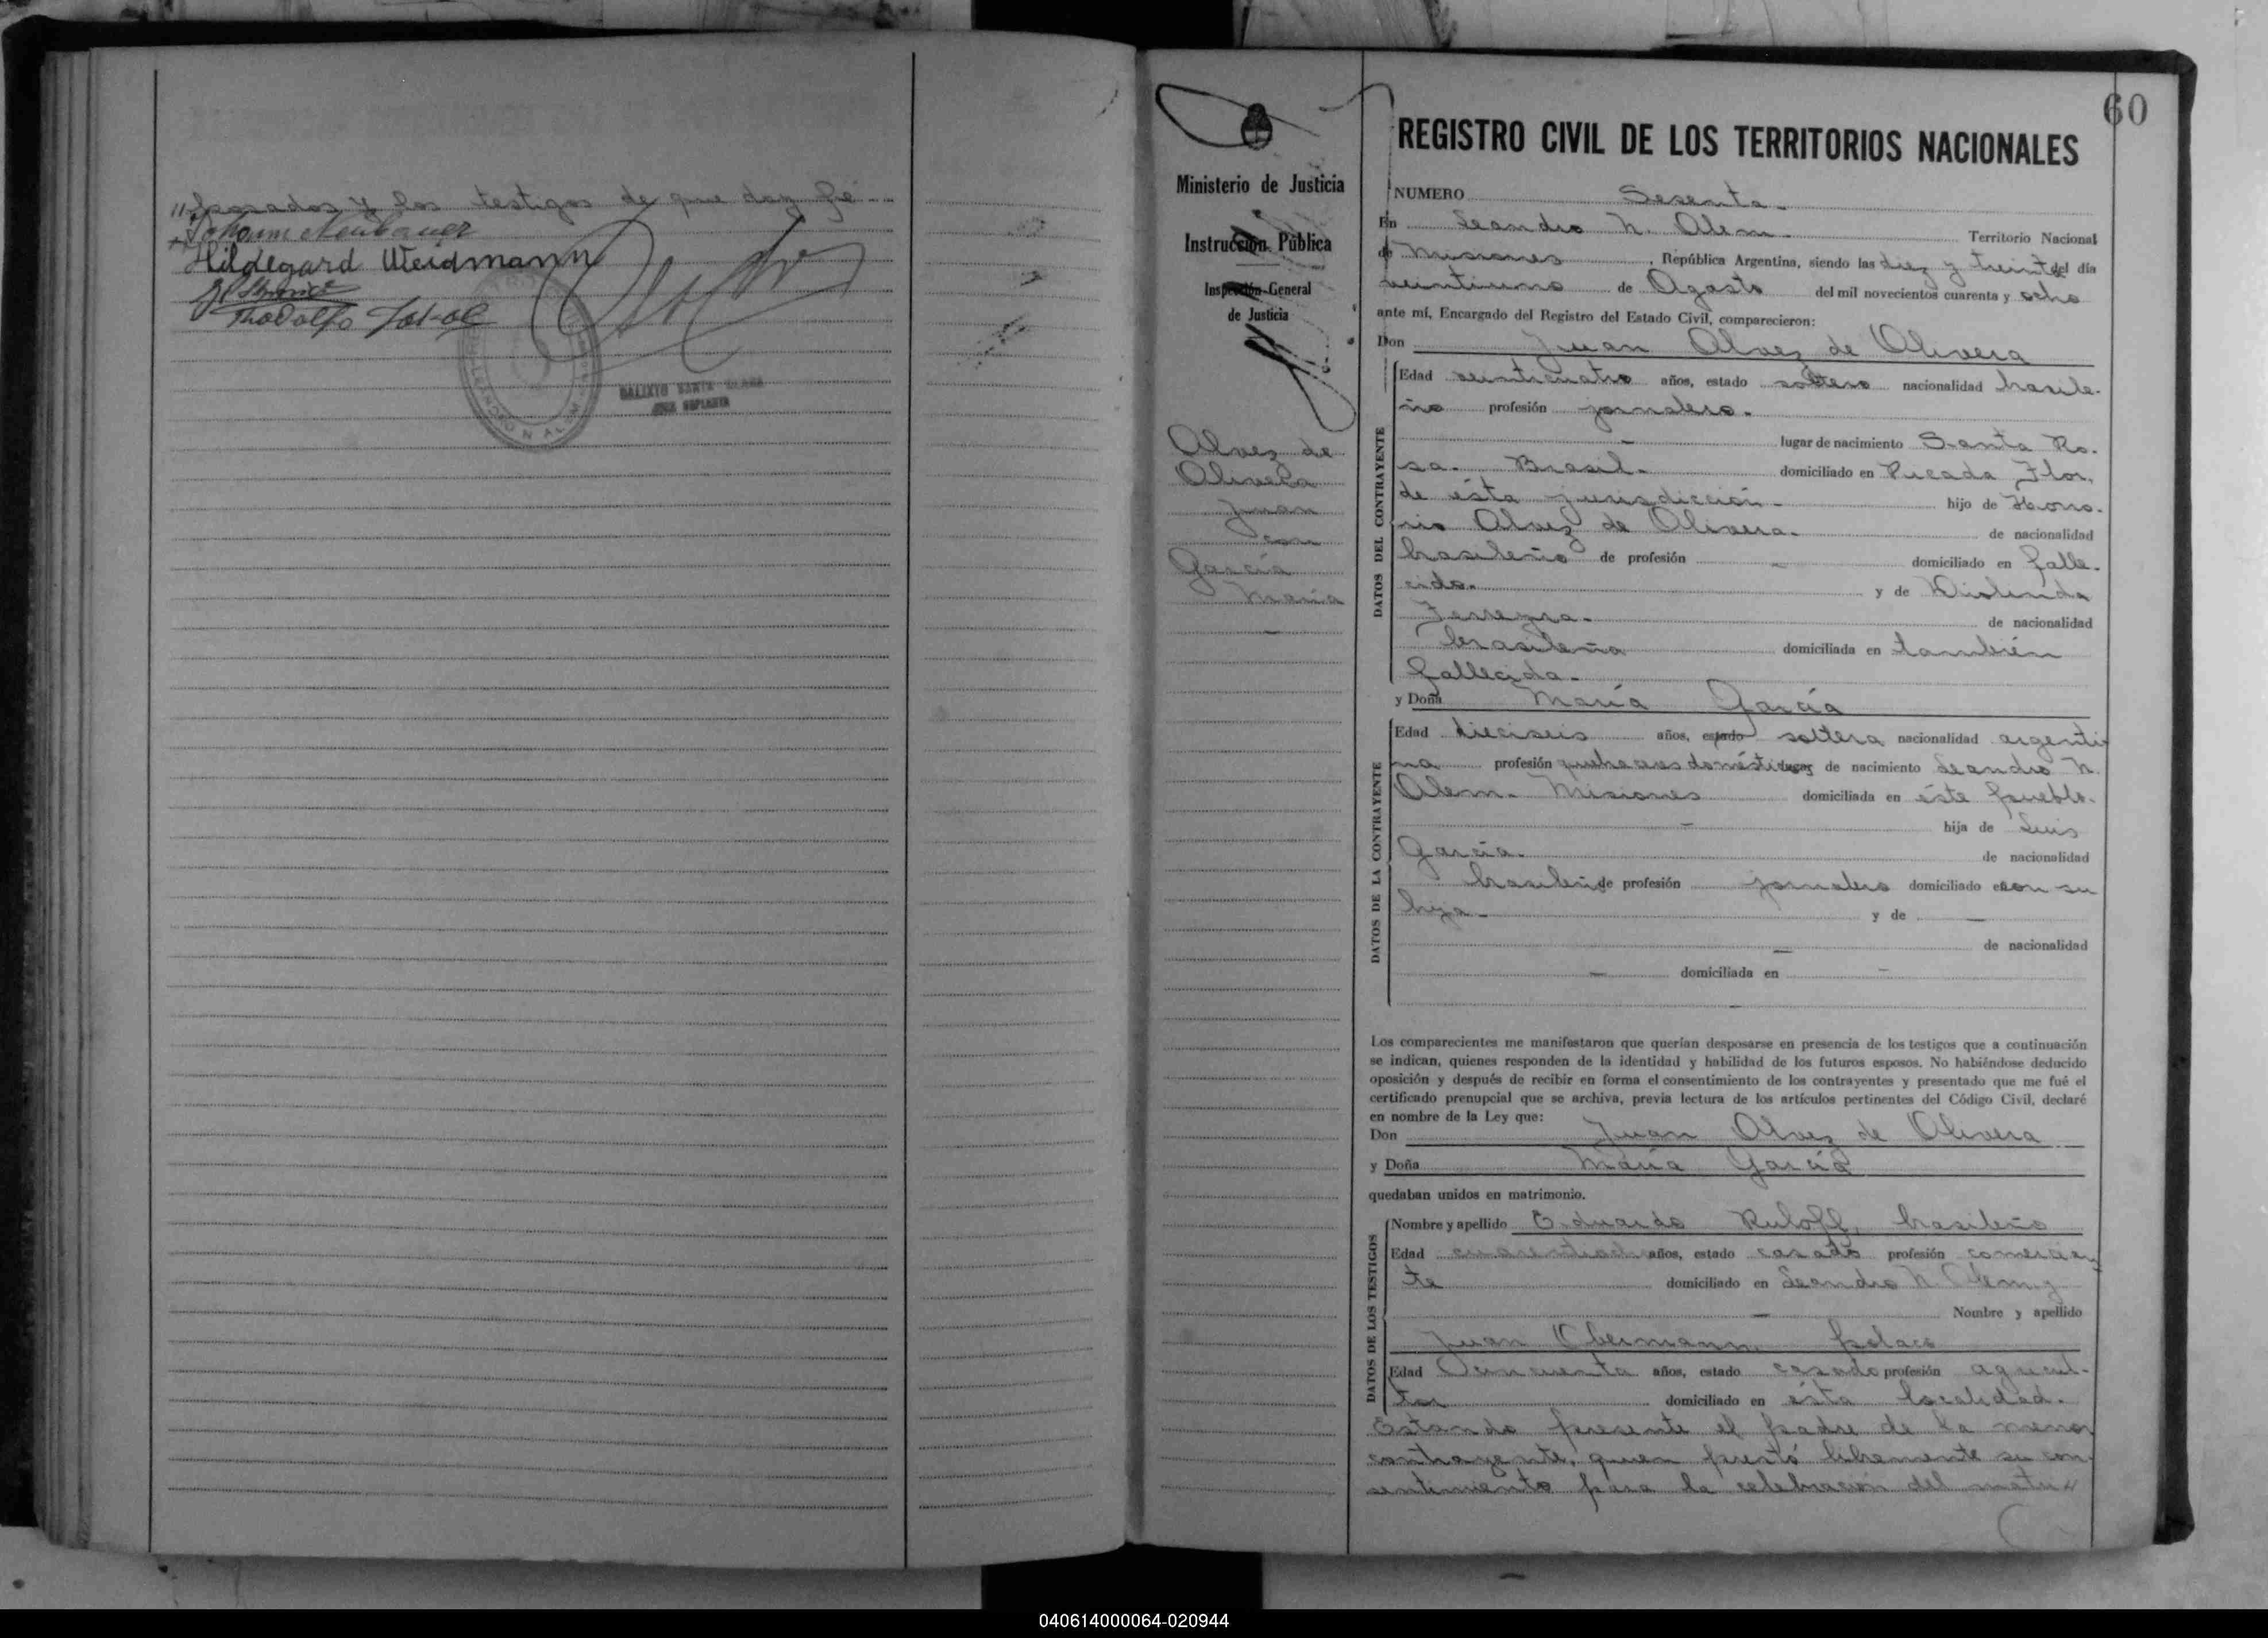 //posados y los testigos de que doy fé
Johann Neubauer
Hildegard Weidmann
Rodolfo
CALIXTO SANTA
JUEZ SUPLENTE
LEANDRO N. ALEM
60
Ministerio de Justicia
Instrucción Pública
Inspección General
de Justicia
Alvez de
Olivera
Juan
con
García
María
REGISTRO CIVIL DE LOS TERRITORIOS NACIONALES
NUMERO Sesenta.
En Leandro N. Alem. Territorio Nacional
de Misiones, República Argentina, siendo las diez y treinta del día
veintiuno de Agosto del mil novecientos cuarenta y ocho
ante mí, Encargado del Registro del Estado Civil, comparecieron:
Don Juan Alvez de Olivera
DATOS DEL CONTRAYENTE
Edad veinticuatro años, estado soltero nacionalidad brasile-
ño profesión jornalero.
- lugar de nacimiento Santa Ro-
sa. Brasil. domiciliado en Picada Flor,
de ésta jurisdicción - hijo de Hono-
rio Alvez de Olivera. de nacionalidad
brasileño de profesión - domiciliado en falle-
cido. y de
Ferreyra. de nacionalidad
brasileña domiciliada en también
fallecida.
y Doña María García
DATOS DE LA CONTRAYENTE
Edad dieciseis años, estado soltera nacionalidad argenti
na profesión quehaceres domésticos lugar de nacimiento Leandro N.
Alem. Misiones domiciliada en éste pueblo.
- hija de Luis
García. de nacionalidad
brasileño de profesión jornalero domiciliado en con su
hija. y de -
- de nacionalidad
- domiciliada en -
-
Los comparecientes me manifestaron que querían desposarse en presencia de los testigos que a continuación
se indican, quienes responden de la identidad y habilidad de los futuros esposos. No habiéndose deducido
oposición y después de recibir en forma el consentimiento de los contrayentes y presentado que me fué el
certificado prenupcial que se archiva, previa lectura de los artículos pertinentes del Código Civil, declaré
en nombre de la Ley que:
Don Juan Alvez de Olivera
y Doña María García
quedaban unidos en matrimonio.
DATOS DE LOS TESTIGOS
Nombre y apellido Eduardo Ruloff, brasileño
Edad años, estado casado profesión comercian
te domiciliado en Leandro N. Alem y
- Nombre y apellido
Juan Obermann, polaco
Edad cincuenta años, estado casado profesión agricul-
tor domiciliado en ésta localidad.
Estando presente el padre de la menor
contrayente, quien prestó libremente su con-
sentimiento para la celebración del matri
040614000064-020944